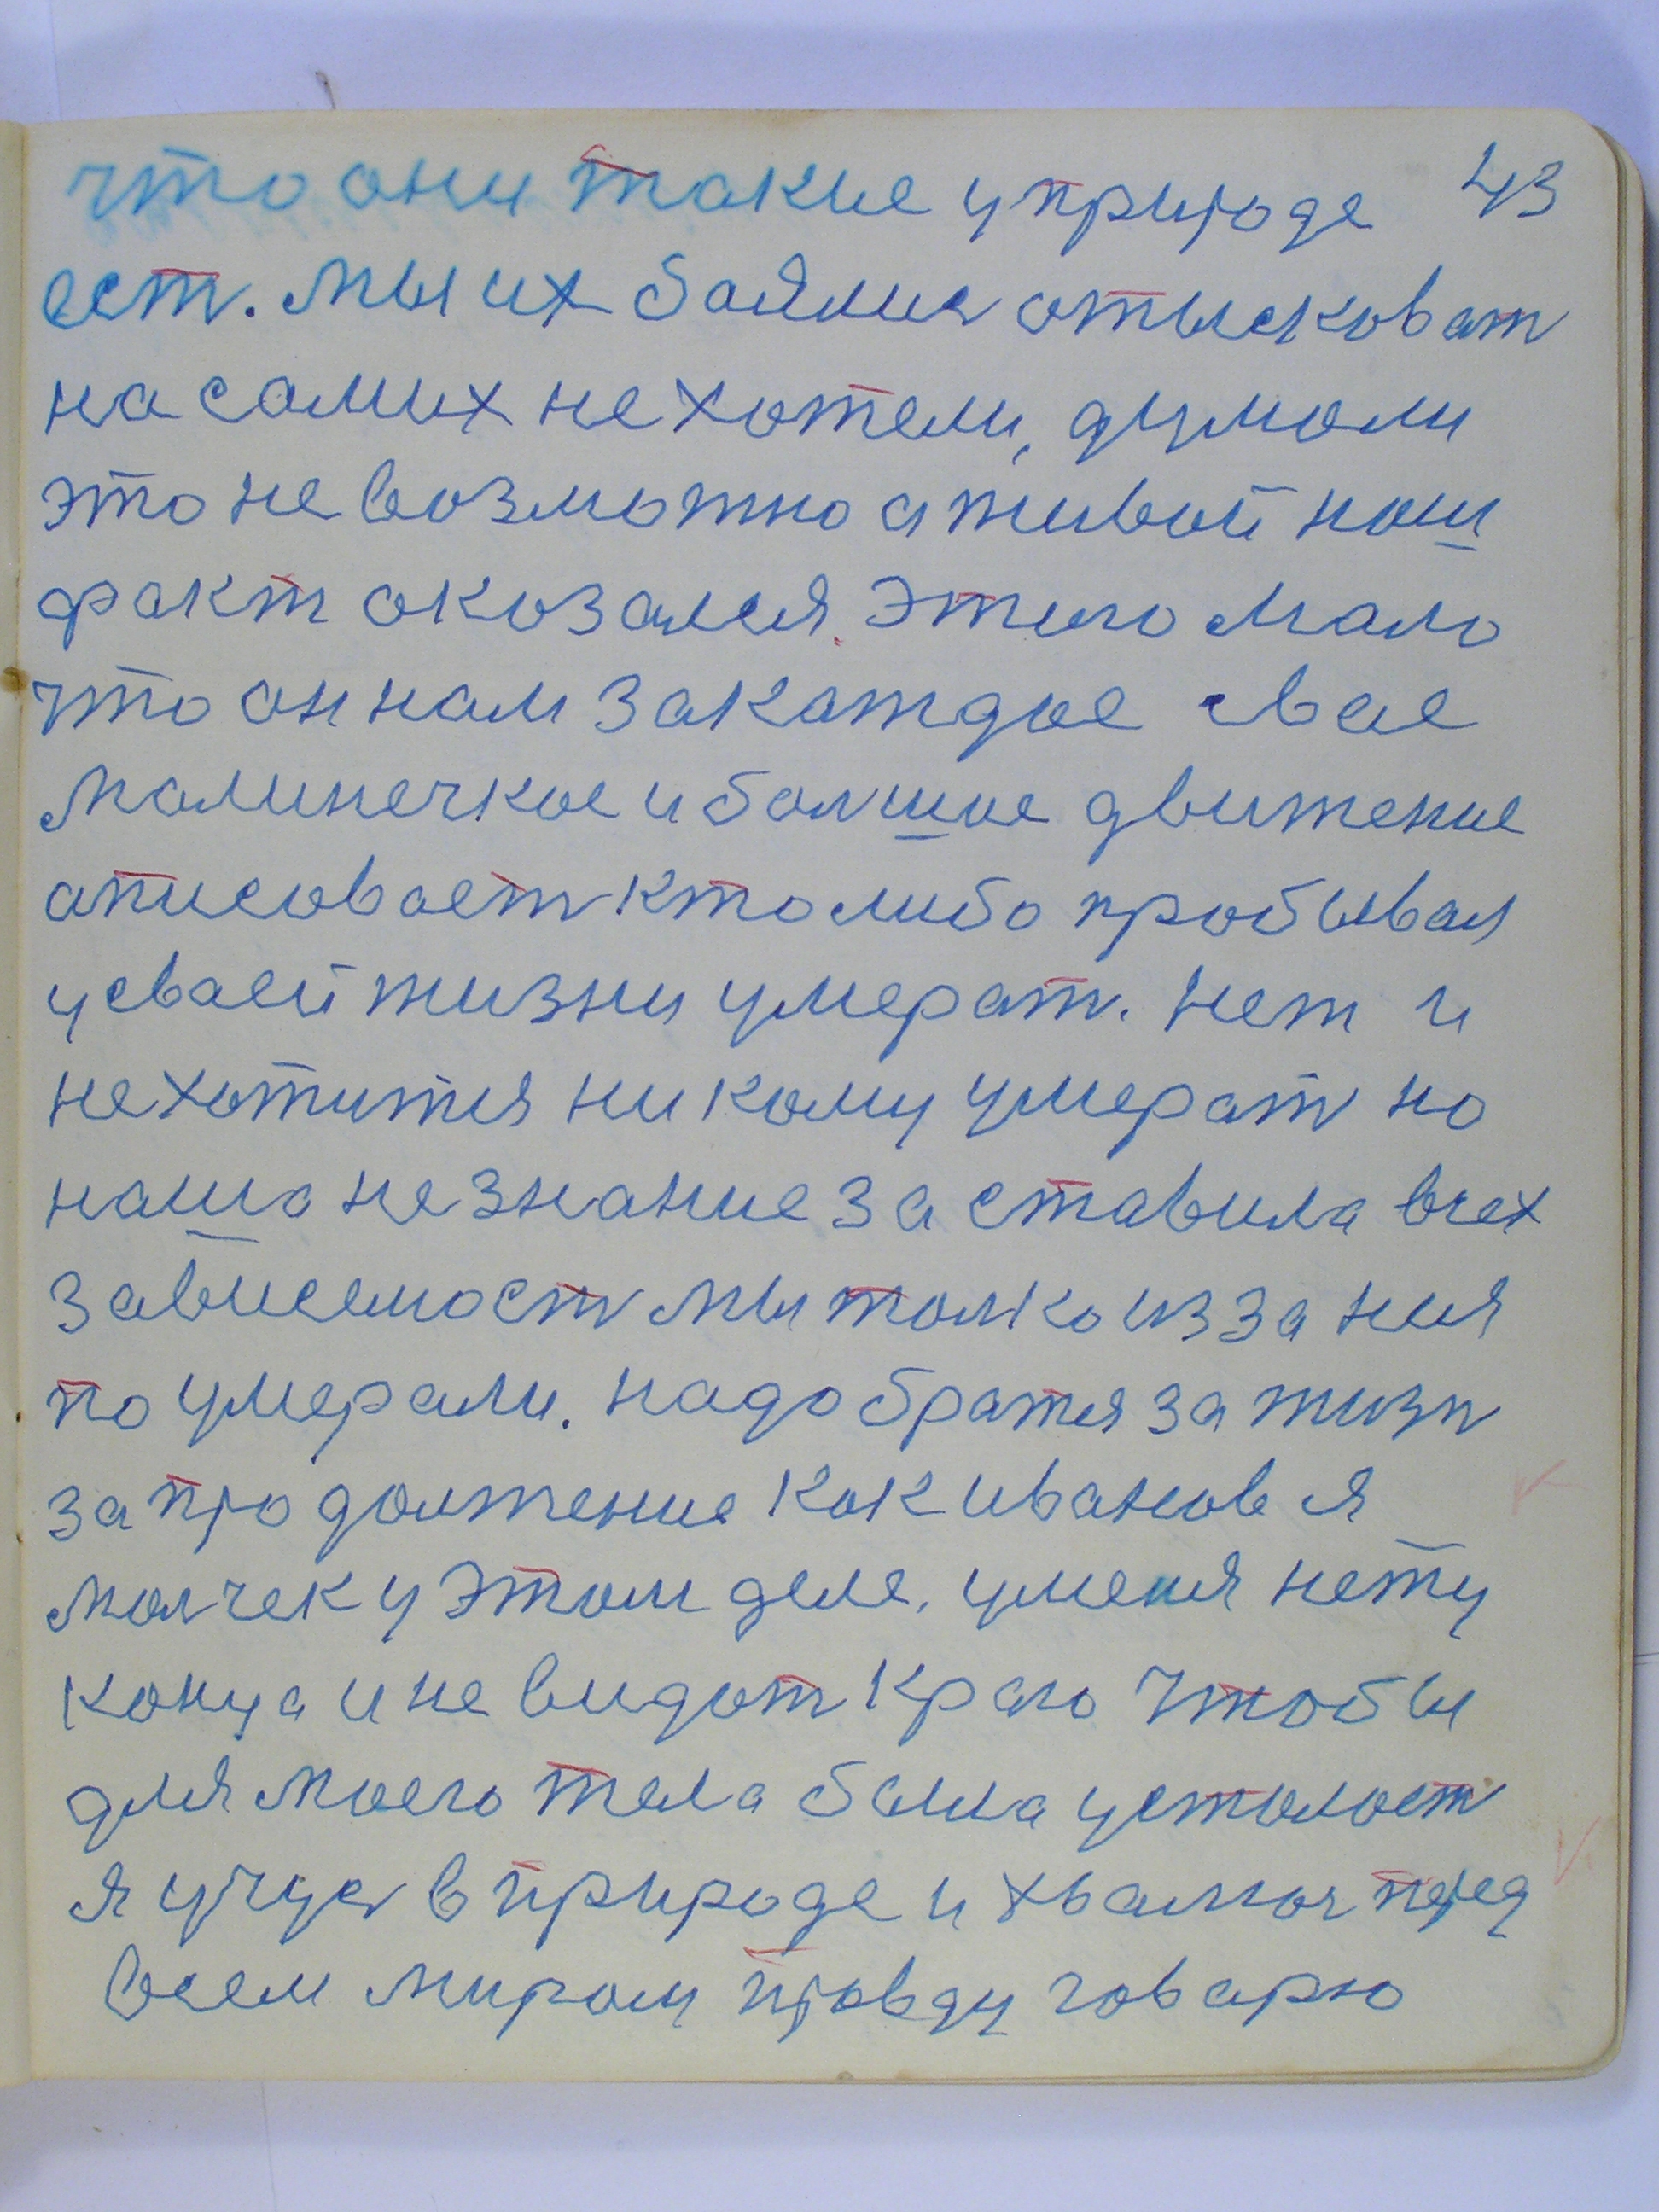 что они такие у природе 43
ест. мы их баялися отысковат
на самих не хотели, думоли
это не возможно а живой наш
факт оказался. этого мало
что он нам за каждое свае
малинечкое и болшое движение
аписовает кто либо пробывал
у сваей жизни умерат. нет и
не хотится ни кому умерат но
нашо не знание заставила всех
зависемост мы толко из за ния
по умерали. надо братся за жизн
за продолжение как иванов я
молчек у этом деле. у меня нету
конца и не видат краю чтобы
для моего тела была усталост
я учус в природе и хвалюс перед
всем миром правду говарю